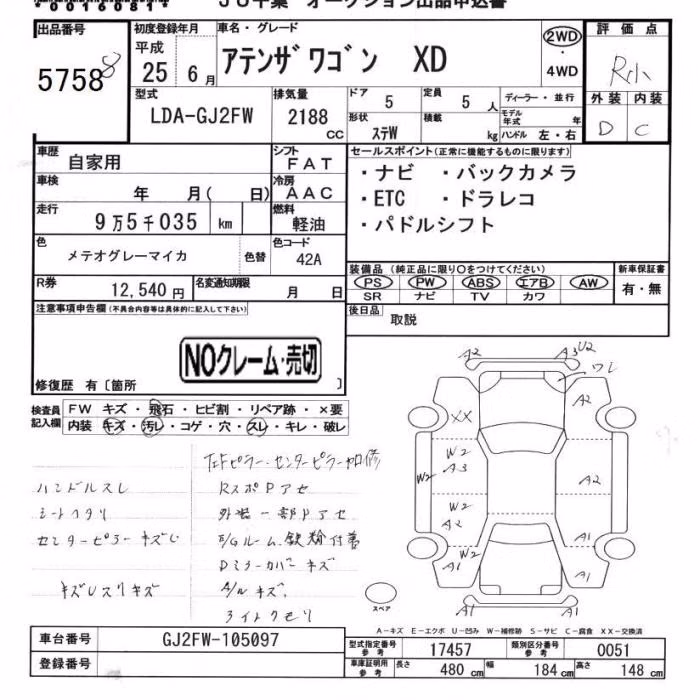 00160814 JU千葉 オークション出品申込書
出品番号 初度登録年月 車名・グレード 評価点
平成 25 年 6 月 アテンザワゴン XD 2WD・4WD R小
57588
型式 排気量 ドア 5 定員 5 人 ディーラー・並行 外装 内装
LDA-GJ2FW 2188 CC 形状 ステW 積載 kg モデル年式 年 ハンドル 左・右 D C
車歴 自家用 シフト FAT セールスポイント(正常に機能するものに限ります)
車検 年 月( 日) 冷房 AAC ・ナビ ・バックカメラ
走行 9万5千035 km 燃料 軽油 ・ETC ・ドラレコ
・パドルシフト
色 メテオグレーマイカ 色替 色コード 42A
装備品(純正品に限り○をつけてください) 新車保証書
R券 12,540円 名変通知期限 月 日 PS PW ABS エアB AW 有・無
SR ナビ TV カワ
注意事項申告欄(不具合内容等は具体的に記入して下さい) 後日品 取説
NOクレーム・売切
修復歴 有〔箇所 〕
検査員記入欄 FW キズ・飛石・ヒビ割・リペア跡・×要
内装 キズ・汚レ・コゲ・穴・スレ・キレ・破レ
A2 A3 U2 ワレ
A2
XX
W2 A3
W2
A2
W2 A2
A1
A1 W2 A1
A1 A1
左Fピラー、センターピラー加修
ハンドルスレ RスポPアセ
シートヘタリ 外装一部Pアセ
センターピラーキズし E/Gルーム鉄粉付着
Dミラーカバーキズ
キズUスリキズ A/Wキズ
ライトクモリ
スペア
A-キズ E-エクボ U-凹み W-補修跡 S-サビ C-腐食 XX-交換済
車台番号 GJ2FW-105097 型式指定番号参考 17457 類別区分番号参考 0051
登録番号 車庫証明用参考 長さ 480 cm 幅 184 cm 高さ 148 cm